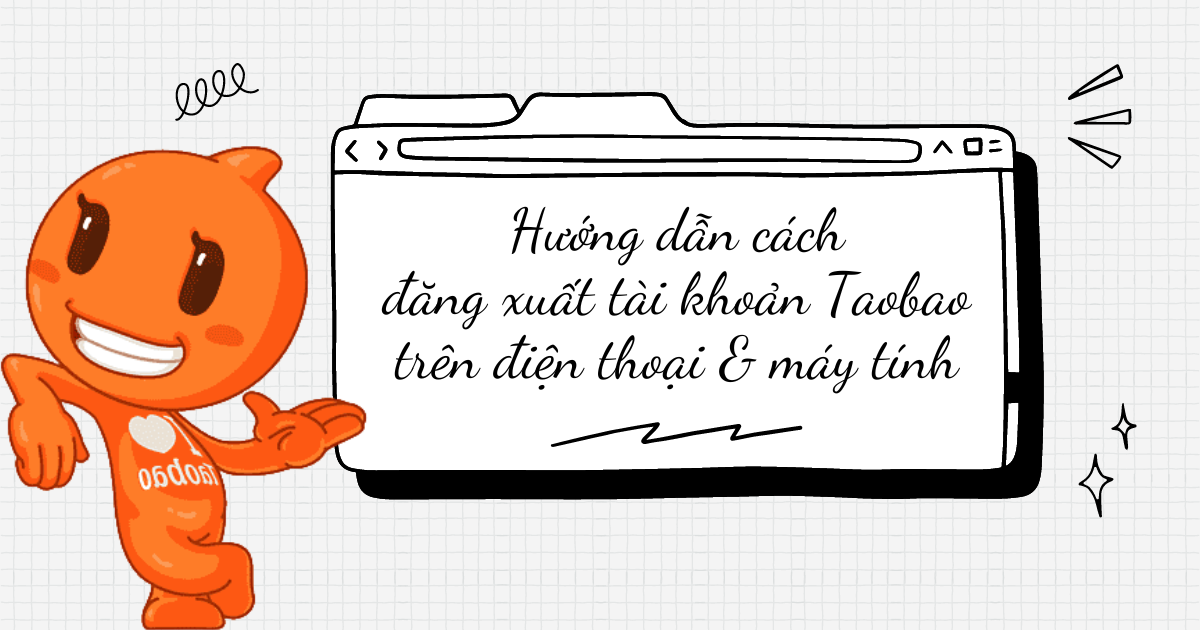 Hướng dẫn cách
đăng xuất tài khoản Taobao
trên điện thoại & máy tính
Taobao